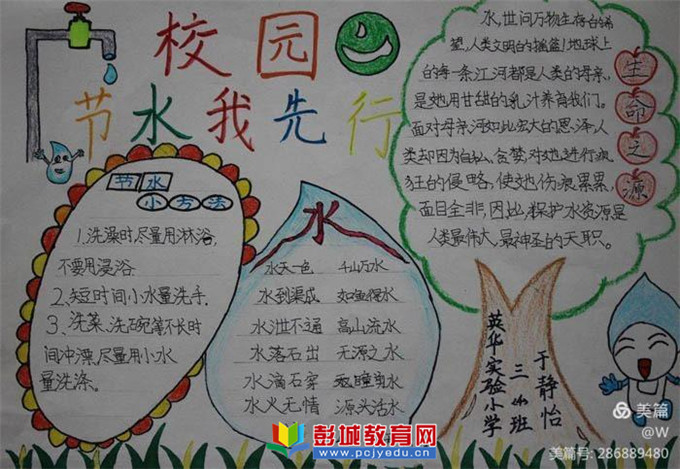 校园
节水我先行
节水
小方法
1.洗澡时,尽量用淋浴,
不要用浸浴.
2.短时间小水量洗手.
3、洗菜、洗碗等不长时
间冲涤,尽量用小水
量洗涤.
水
水天一色 千山万水
水到渠成 如鱼得水
水泄不通 高山流水
水落石出 无源之水
水滴石穿 水
水火无情 源头活水
水,世间万物生存的希
望,人类文明的摇篮!地球上
的每一条江河都是人类的母亲,
是她用甘甜的乳汁养育我们。
面对母亲河如此宏大的恩泽,人
类却因为自私、贪婪,对她进行疯
狂的侵略,使她伤痕累累,
面目全非,因此,保护水资源是
人类最伟大、最神圣的天职。
生命之源
英华实验小学
三(4)班
于静怡
彭城教育网
www.pcjyedu.cn
美篇
@W
美篇号: 286889480